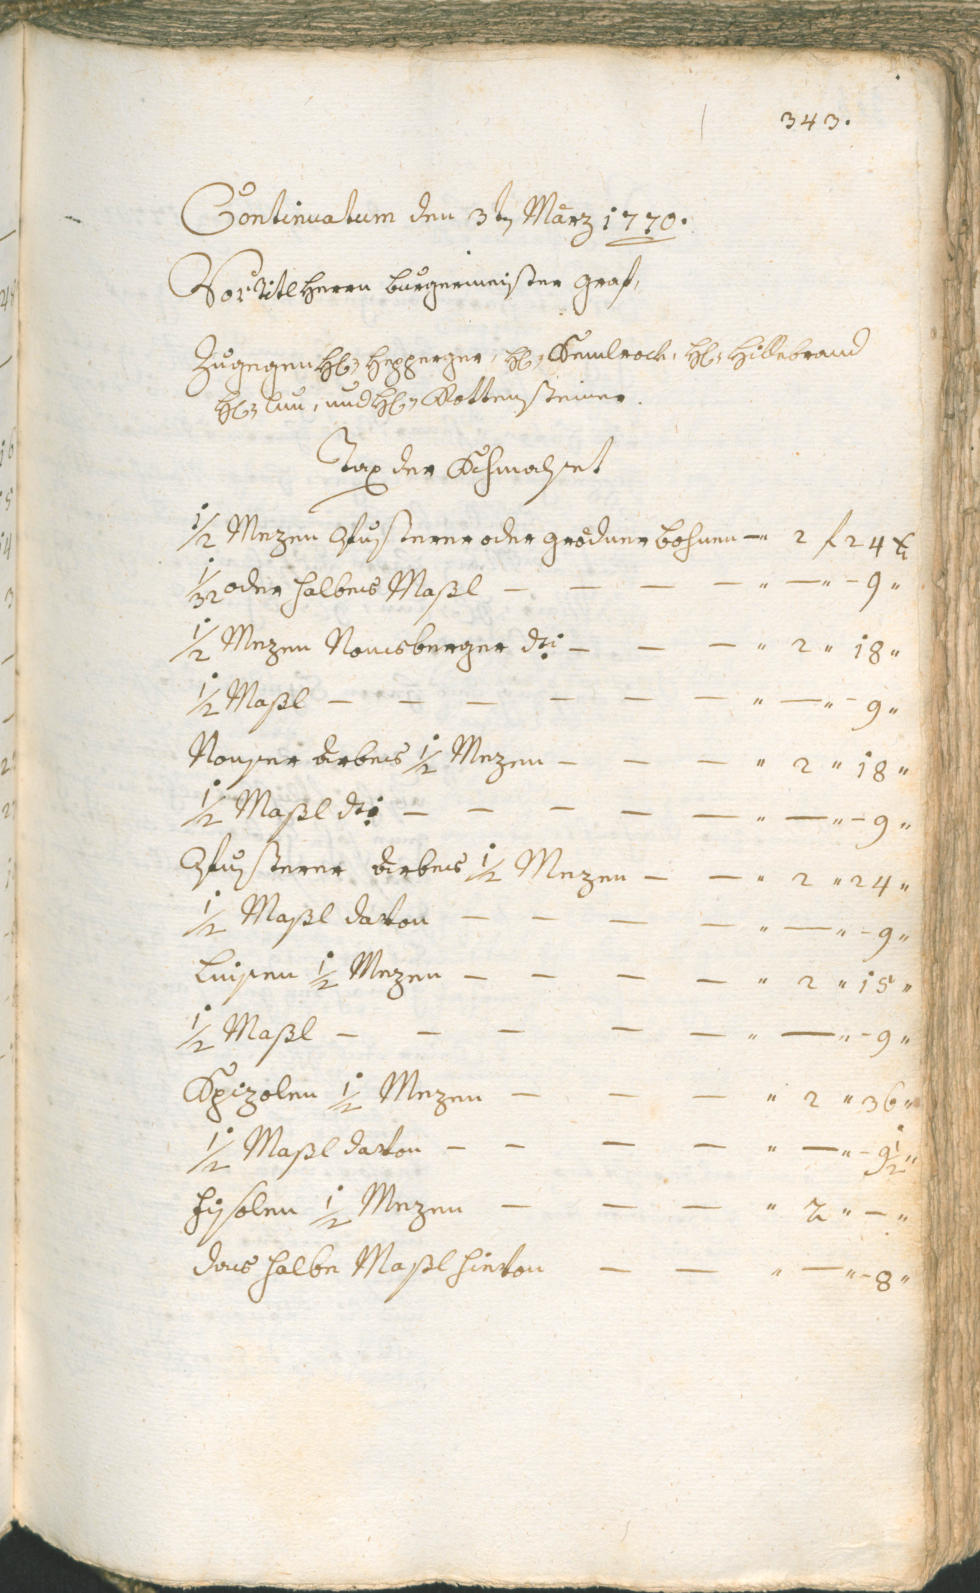 343.
Continuatum den 3tn März 1770.
Vor Titl Herrn burgermeister Graf,
Zugegen H: Hepperger, H: Kemlrock, H: Hillebrand
H: und H: Rottensteiner.
Tax der
1/2 Mezen Pfusterer oder gredner bohnen — 2 f 24 x
1/32 oder halbes Maßl — — — — " — " - 9 "
1/2 Mezen Nonsberger dti — — — " 2 " 18 "
1/2 Maßl — — — — — — " — " - 9 "
Nonser Arbes 1/2 Mezen — — — " 2 " 18 "
1/2 Maßl dti — — — — — " — " - 9 "
Pfusterer Arbes 1/2 Mezen — — " 2 " 24 "
1/2 Maßl davon — — — — " — " - 9 "
Linsen 1/2 Mezen — — — — " 2 " 15 "
1/2 Maßl — — — — — " — " - 9 "
1/2 Mezen — — — " 2 " 36 "
1/2 Maßl davon — — — — " — " - 9 1/2 "
Fisolen 1/2 Mezen — — — " 2 " — "
das halbe Maßl hievon — — " — " - 8 "